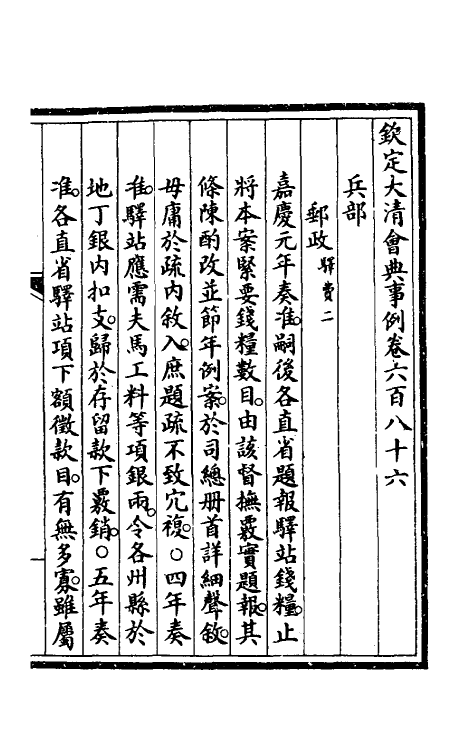 欽定大清會典事例卷六百八十六
兵部
郵政 驛費二
嘉慶元年奏准。嗣後各直省題報驛站錢糧。止
將本案緊要錢糧數目。由該督撫覈實題報。其
條陳酌改並節年例案。於司總册首詳細聲敘。
毋庸於疏内敘入。庶題疏不致宂複。○四年奏
准。驛站應需夫馬工料等項銀兩。令各州縣於
地丁銀内扣支。歸於存留款下覈銷。○五年奏
准。各直省驛站項下額徵款目。有無多寡。雖屬